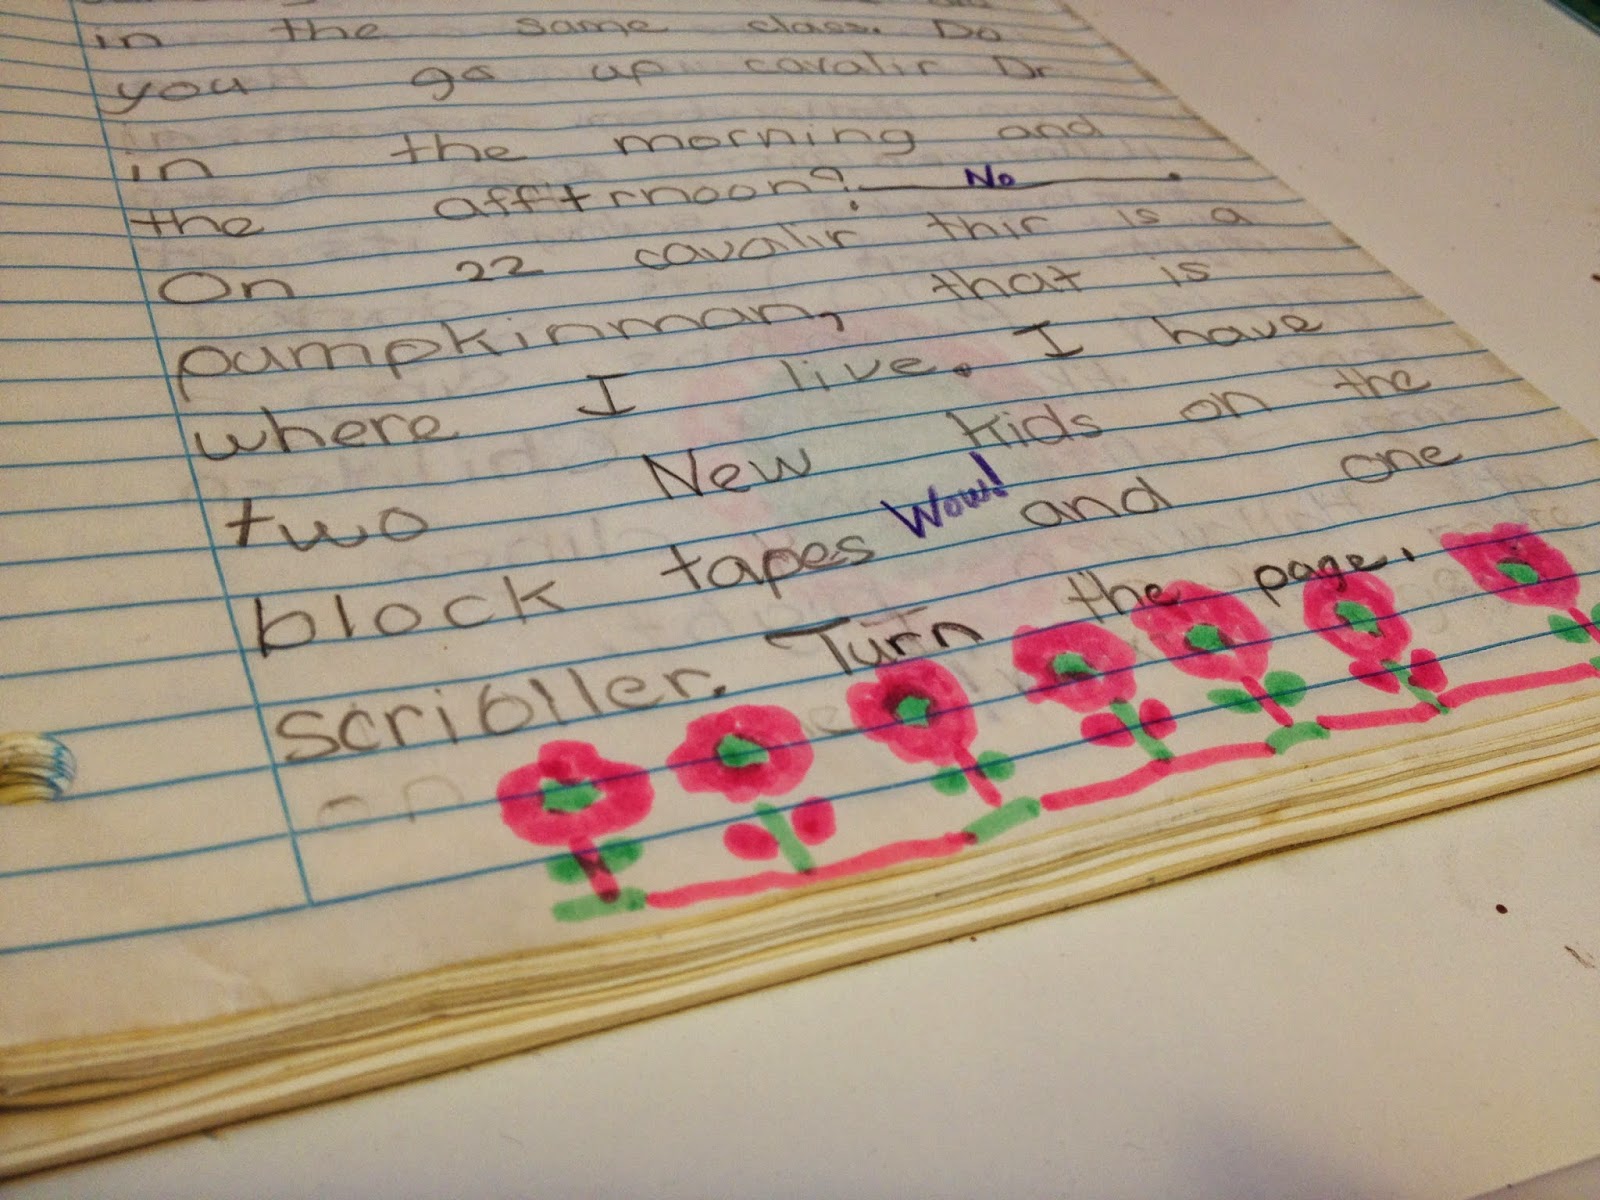 in the same class. Do
you go up cavalir Dr
in the morning and
the affternoon? No.
On 22 cavalir thir is a
pumpkinman, that is
where I live. I have
two New kids on the
block tapes Wow! and one
scribller. Turn the page.